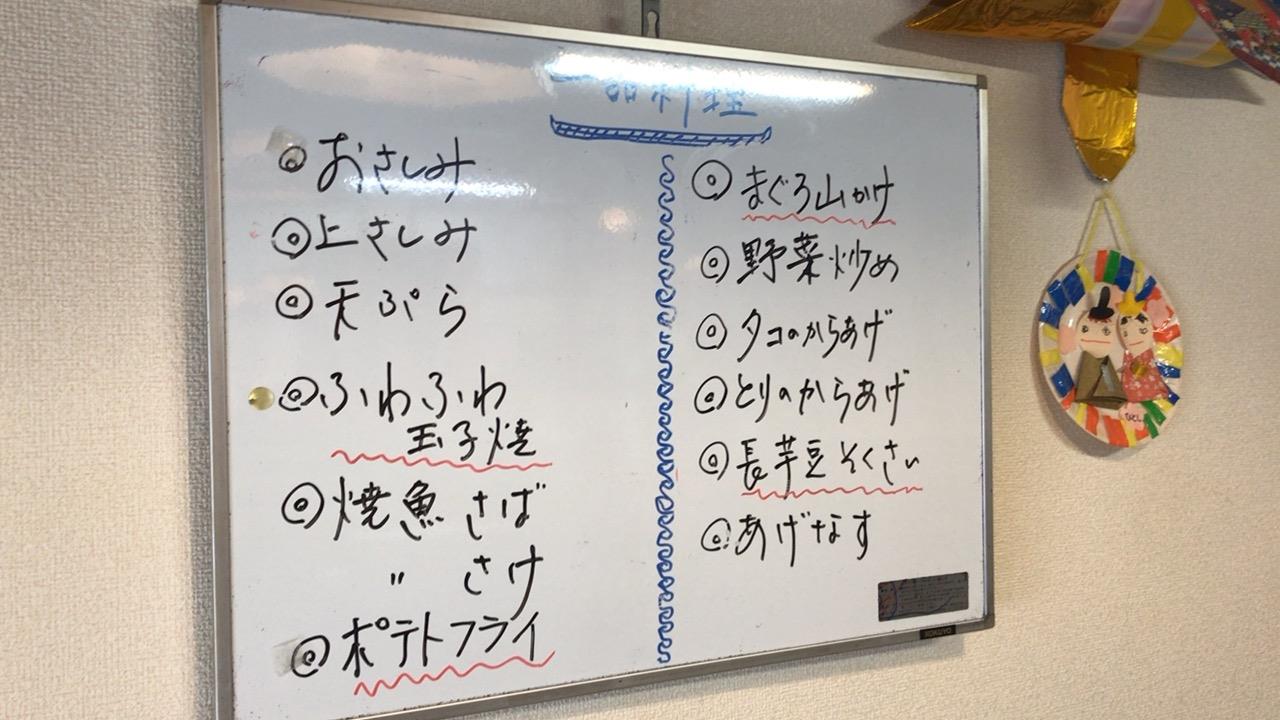 一品料理
◎おさしみ
◎上さしみ
◎天ぷら
◎ふわふわ
玉子焼
◎焼魚 さば
〃 さけ
◎ポテトフライ
◎まぐろ山かけ
◎野菜炒め
◎タコのからあげ
◎とりのからあげ
◎長芋豆そくさい
◎あげなす
KOKUYO